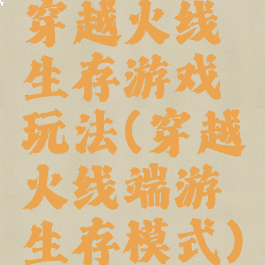 穿越火线
生存游戏
玩法(穿越
火线端游
生存模式)